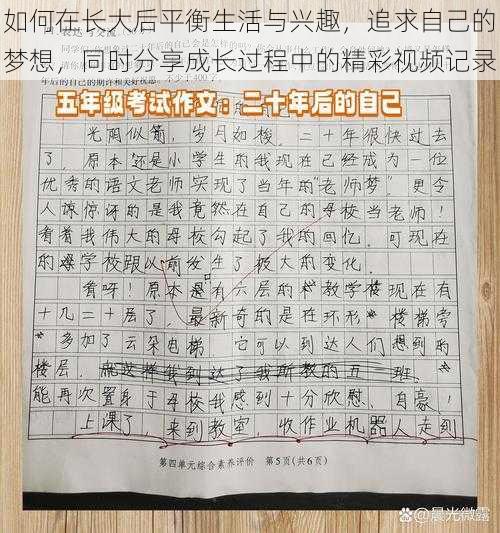 如何在长大后平衡生活与兴趣，追求自己的
梦想，同时分享成长过程中的精彩视频记录
五年级考试作文：二十年后的自己
光阴似箭，岁月如梭，二十年很快过去
了，原本还是小学生的我现在已经成为一位
优秀的语文老师实现了当年的“老师梦”，更令
人谅惊讶的是我竟然在自己的母校当老师！
看着我伟大的母校勾起了我的回忆，可现在
的学校跟以前发生了极大的变化。
看呀！原本是有六层的教学楼现在有
十几二十层了，最新奇的是在环形楼梯旁
多加了云朵电梯，它可以到达人们想到的
楼层，班
能再次置身于母校我感到十分欣慰、自豪！
上课了，来到教室，收作业机器人走到
第四单元综合素养评价 第5页(共6页)
@晨光微露